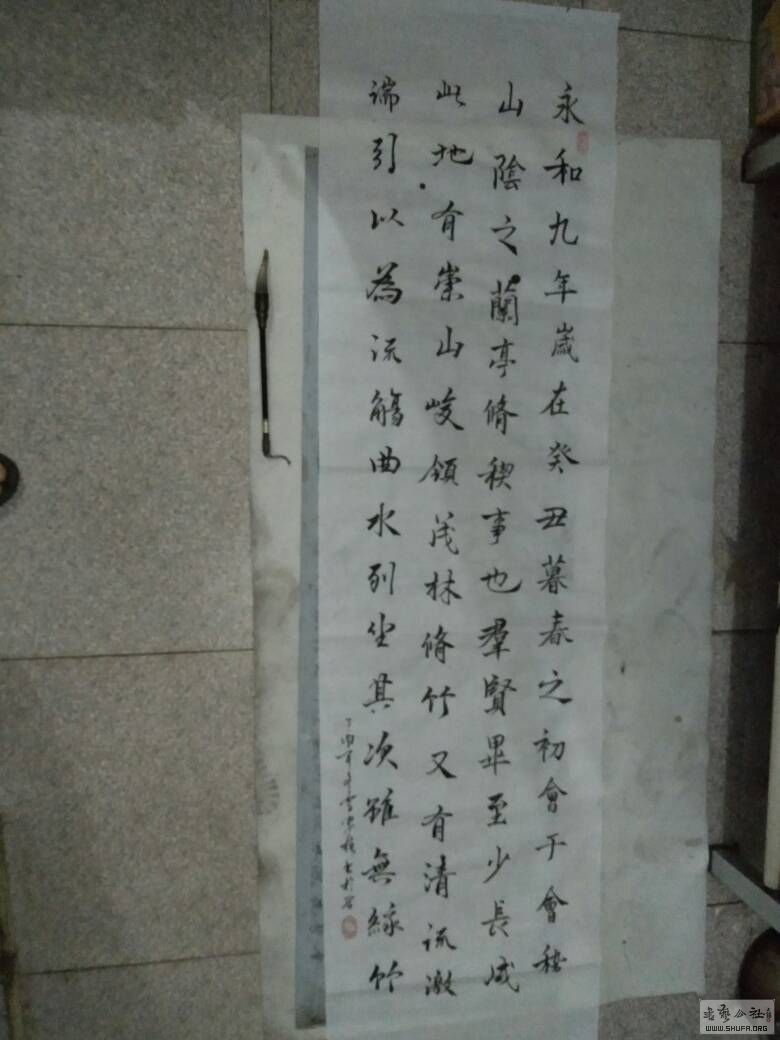 永和九年歲在癸丑暮春之初會于會稽
山陰之蘭亭脩稧事也羣賢畢至少長咸
此地有崇山峻領茂林脩竹又有清流激
湍引以為流觴曲水列坐其次雖無絲竹
丁酉年
書藝公社
WWW.SHUFA.ORG